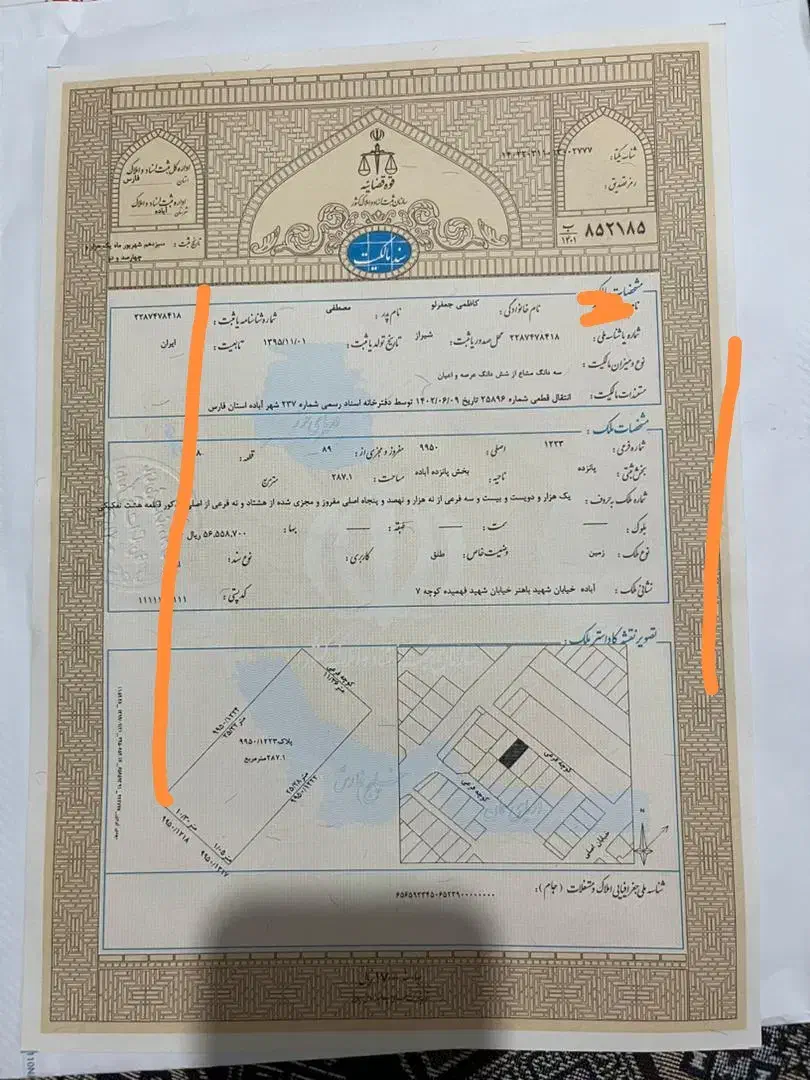 قوه قضائیه
سازمان ثبت اسناد و املاک کشور
سند مالکیت
اداره کل ثبت اسناد و املاک
استان فارس
اداره ثبت اسناد و املاک
شهرستان آباده
تاریخ ثبت : سیزدهم شهریور ماه یکهزار و
چهارصد و دو
شناسه یکتا :
رمز تصدیق :
۸۵۲۱۸۵ ب ۱۴۰۱
مشخصات
نام خانوادگی : کاظمی جعفرلو نام پدر : مصطفی شماره شناسنامه یا ثبت : ۲۲۸۷۴۷۸۴۱۸
شماره یا شناسه ملی : ۲۲۸۷۴۷۸۴۱۸ محل صدور یا ثبت : شیراز تاریخ تولد یا ثبت : ۱۳۹۵/۱۱/۰۱ تابعیت : ایران
نوع و میزان مالکیت : سه دانگ مشاع از شش دانگ عرصه و اعیان
مستندات مالکیت : انتقال قطعی شماره ۲۵۸۹۶ تاریخ ۱۴۰۲/۰۶/۰۹ توسط دفترخانه اسناد رسمی شماره ۲۳۷ شهر آباده استان فارس
مشخصات ملک :
شماره فرعی : ۱۲۲۳ اصلی : ۹۹۵۰ مفروز و مجزی از : ۸۹ قطعه :
بخش ثبتی : پانزده ناحیه : بخش پانزده آباده مساحت : ۲۸۷.۱ مترمربع
شماره ملک به حروف : یک هزار و دویست و بیست و سه فرعی از نه هزار و نهصد و پنجاه اصلی مفروز و مجزی شده از هشتاد و نه فرعی از اصلی قطعه هشت تفکیکی
بلوک : سمت : طبقه : بها : ۵۶,۵۵۸,۷۰۰ ریال
نوع ملک : زمین وضعیت خاص : طلق کاربری : نوع سند :
نشانی ملک : آباده خیابان شهید باهنر خیابان شهید فهمیده کوچه ۷ کد پستی :
تصویر نقشه کاداستر ملک :
کوچه فرعی
۱۱/۲۵ متر
۹۹۵۰/۱۲۲۴
پلاک ۹۹۵۰/۱۲۲۳
۲۸۷.۱ مترمربع
۹۹۵۰/۱۲۲۲
۹۹۵۰/۱۲۱۸
۹۹۵۰/۱۲۱۷
کوچه فرعی
کوچه فرعی
خیابان اصلی
N
شناسه ملی جغرافیایی املاک و مستغلات (جام) :